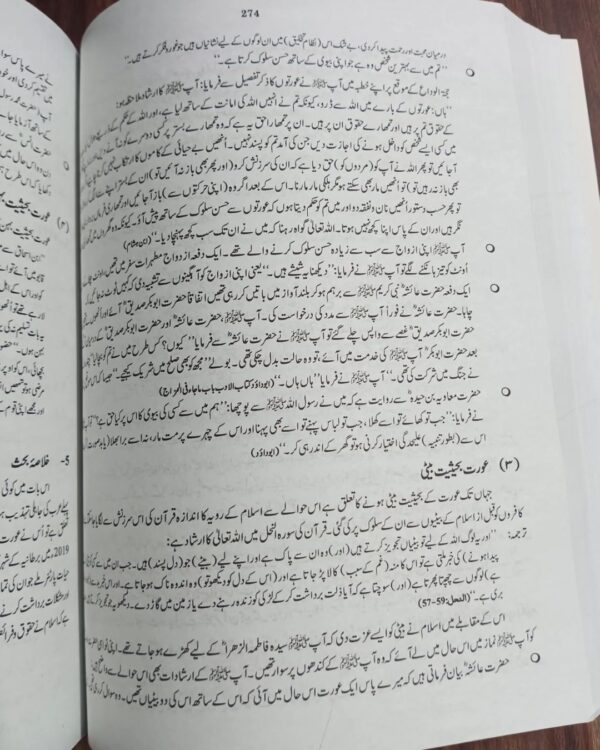 274
درمیان محبت اور رحمت پیدا کر دی، بے شک اس (نظام تخلیق) میں ان لوگوں کے لیے نشانیاں ہیں جو غور و فکر کرتے ہیں۔"
"تم میں سے بہترین شخص وہ ہے جو اپنی بیوی کے ساتھ حسن سلوک کرتا ہے۔"
حجۃ الوداع کے موقع پر اپنے خطبہ میں آپ ﷺ نے عورتوں کا ذکر تفصیل سے فرمایا: آپ ﷺ کا ارشاد ملاحظہ ہو:
"ہاں: عورتوں کے بارے میں اللہ سے ڈرو، کیونکہ تم نے انہیں اللہ کی امانت کے ساتھ لیا ہے، اور اللہ کے حکم کے
حقوق تم پر ہیں۔ اور تمہارے حقوق ان پر ہیں۔ ان پر تمہارا حق یہ ہے کہ وہ تمہارے بستر پر کسی دوسرے کو نہ آنے
میں کسی ایسے شخص کو داخل ہونے کی اجازت دیں جن کی آمد تم کو پسند نہیں۔ انھیں بے حیائی کے کاموں کا ارتکاب
آجائیں تو پھر اللہ نے آپ کو (مردوں کو) حق دیا ہے کہ ان کی سرزنش کرو (اور پھر بھی باز نہ آئیں تو) ان کے بستر اپنے
بھی باز نہ ہیں تو) تو انھیں مار بھی سکتے ہو مگر ہلکی مار مارنا۔ اس کے بعد اگر وہ (اپنی حرکتوں سے) باز آجائیں اور تمہاری فرماں
تو پھر حسب دستور انھیں نان و نفقہ دو اور میں تم کو حکم دیتا ہوں کہ عورتوں سے حسن سلوک کے ساتھ پیش آؤ۔ کیونکہ وہ تمہارے گھروں میں
نگر ہیں اور ان کے پاس اپنا کچھ نہیں ہوتا۔ اللہ تعالیٰ گواہ رہنا کہ میں نے ان تک سب کچھ پہنچا دیا۔" (ابن ہشام)
آپ ﷺ اپنی ازواج سے سب سے زیادہ حسن سلوک کرنے والے تھے۔ ایک دفعہ ازواج مطہرات سفر میں تھیں اونٹ چلانے
اُونٹ کو تیز ہانکنے لگے تو آپ ﷺ نے فرمایا: "دیکھنا یہ شیشے ہیں۔" یعنی اپنی ازواج کو آبگینوں سے تشبیہ دی کہ کہیں ٹوٹ نہ جائیں
ایک دفعہ حضرت عائشہؓ نبی کریم ﷺ سے برہم ہو کر بلند آواز میں باتیں کر رہی تھیں اتفاقاً حضرت ابوبکر صدیقؓ آئے اور انھوں نے
چاہا۔ حضرت عائشہؓ نے فوراً آپ ﷺ سے مدد کی درخواست کی۔ آپ ﷺ، حضرت عائشہؓ اور حضرت ابوبکر صدیقؓ کے
حضرت ابوبکر صدیقؓ غصے سے واپس چلے گئے تو آپ ﷺ نے حضرت عائشہؓ سے فرمایا "کیوں؟ کس طرح میں نے تم کو بچا لیا"
بعد حضرت ابوبکرؓ آپ ﷺ کی خدمت میں آئے، تو وہ حالت بدل چکی تھی۔ بولے "مجھ کو بھی صلح میں شریک کیجئے۔" جیسا کہ اس
نے جنگ میں شرکت کی تھی۔" آپ ﷺ نے فرمایا "ہاں ہاں۔" (ابوداؤد کتاب الادب باب ماجاء فی المزاح)
حضرت معاویہ بن حیدہؓ سے روایت ہے کہ میں نے رسول اللہ ﷺ سے پوچھا: "ہم میں سے کسی کی بیوی کا اس پر کیا حق ہے" آپ
نے فرمایا: "جب تو کھائے تو اسے کھلا، جب تو لباس پہنے تو اسے بھی پہنا اور اس کے چہرے پر مت مار، نہ اسے برا بھلا کہہ
اس سے (بطور تنبیہ) علیحدگی اختیار کرنی ہو تو گھر کے اندر ہی کر۔" (ابوداؤد)
(۳) عورت بحیثیت بیٹی
جہاں تک عورت کے بحیثیت بیٹی ہونے کا تعلق ہے اس حوالے سے اسلام کے رویہ کا اندازہ قرآن کی اس سرزنش سے لگایا جا سکتا
کافروں کو قبل از اسلام کے بیٹیوں سے ان کے سلوک پر کی گئی۔ قرآن کی سورہ النحل میں اللہ تعالیٰ کا ارشاد ہے:
ترجمہ: "اور یہ لوگ اللہ کے لیے تو بیٹیاں تجویز کرتے ہیں (اور) وہ ان سے پاک ہے اور اپنے لیے (بیٹے) جو (دل پسند) ہیں۔ جب ان میں سے کسی کو
پیدا ہونے) کی خبر ملتی ہے تو اس کا منہ (غم کے سبب) کالا پڑ جاتا ہے اور (اس کے دل کو دیکھو تو) وہ اندوہ ناک ہو جاتا ہے۔ اور اس خبر سے
ہے) لوگوں سے چھپتا پھرتا ہے (اور) سوچتا ہے کہ آیا ذلت برداشت کر کے لڑکی کو زندہ رہنے دے یا زمین میں گاڑ دے۔ دیکھو
بری ہے۔" (النحل:59-57)
اس کے مقابلے میں اسلام نے بیٹی کو ایسے عزت دی کہ آپ ﷺ سیدہ فاطمۃ الزہراؓ کے لیے کھڑے ہو جاتے تھے۔ اپنی نواسی
کو آپ ﷺ نماز میں اس حال میں لے آئے کہ وہ آپ ﷺ کے کندھوں پر سوار تھیں۔ آپ ﷺ کے ارشادات بھی اس حوالے سے
حضرت عائشہؓ بیان فرماتی ہیں کہ میرے پاس ایک عورت اس حال میں آئی کہ اس کے ساتھ اس کی دو بیٹیاں تھیں۔ وہ سوال کر رہی تھی
(۴) عورت بحیثیت
5- خلاصۂ بحث
اس بات میں کوئی